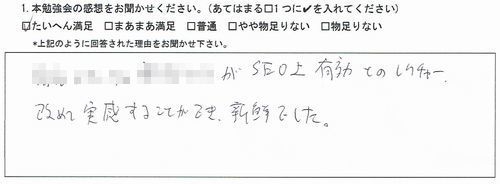 1. 本勉強会の感想をお聞かせください。(あてはまる□1つに✔を入れてください)
☑たいへん満足 □まあまあ満足 □普通 □やや物足りない □物足りない
*上記のように回答された理由をお聞かせ下さい。
が SEO上 有効 とのレクチャー、
改めて 実感することができ、新鮮でした。